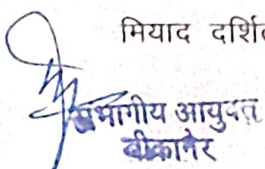 मियाद दर्शि
संभागीय आयुक्त
बीकानेर